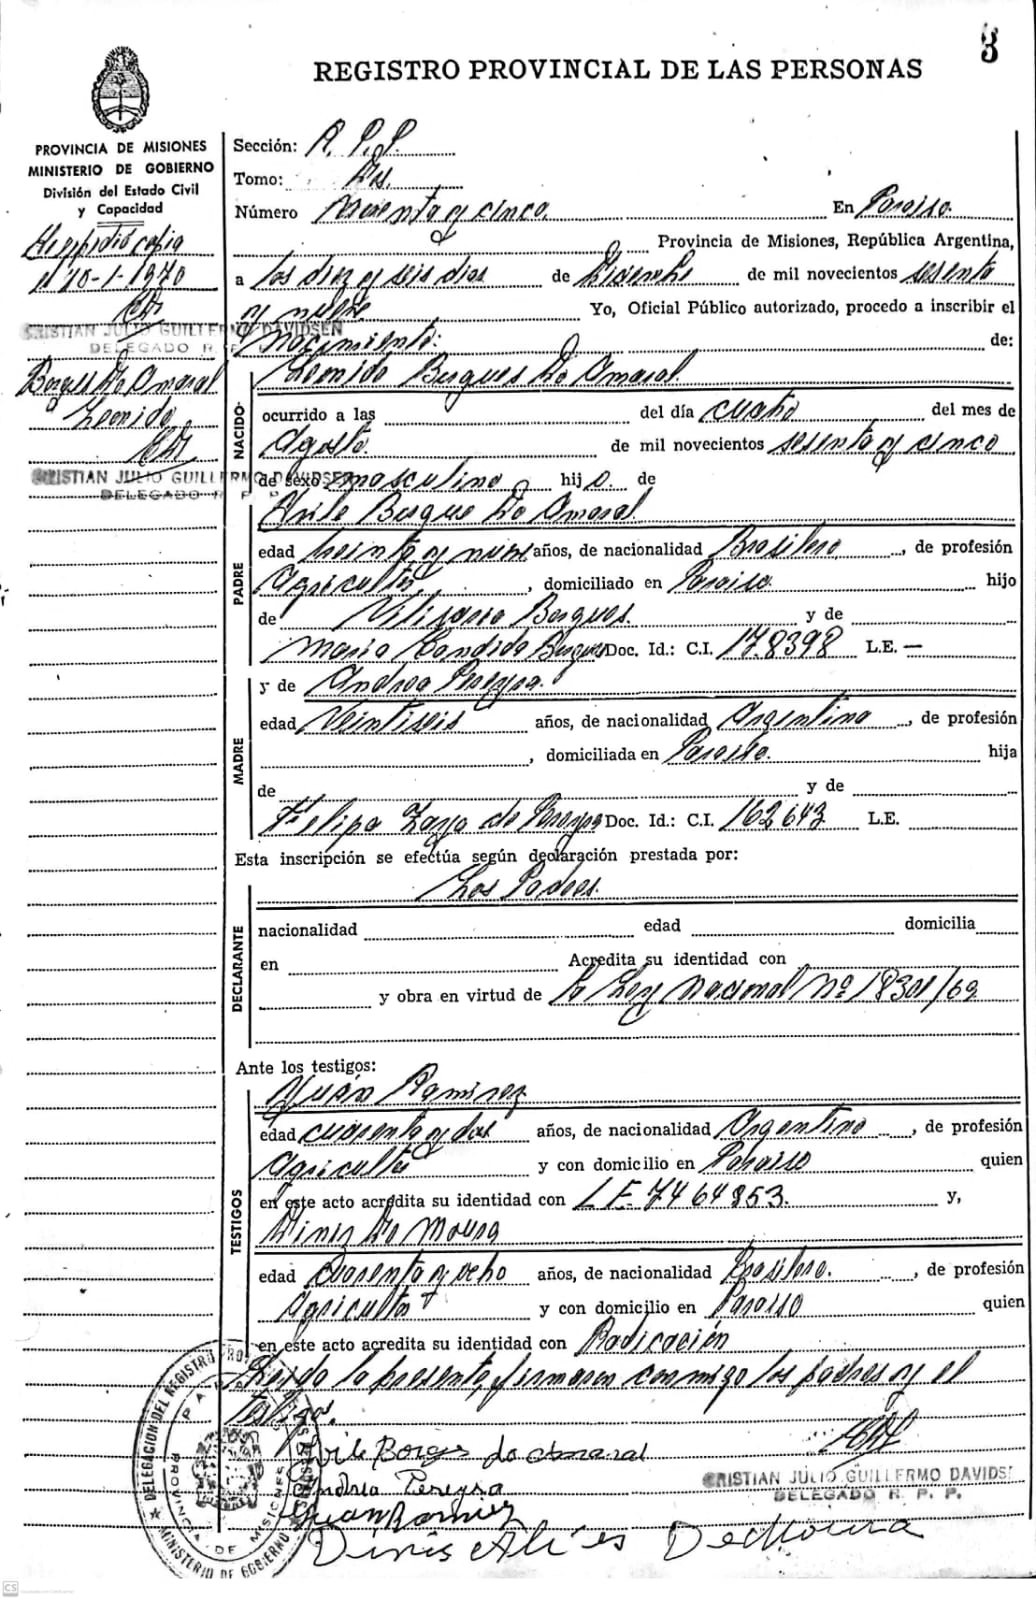 3
REGISTRO PROVINCIAL DE LAS PERSONAS
PROVINCIA DE MISIONES
MINISTERIO DE GOBIERNO
División del Estado Civil
y Capacidad
Se expidió copia
el 10-1-1970
CRISTIAN JULIO GUILLERMO DAVIDSEN
DELEGADO R. P. P.
Borges Do Amaral
Leonido
CRISTIAN JULIO GUILLERMO DAVIDSEN
DELEGADO R. P. P.
Sección: R. P. P.
Tomo:
Número y cinco En Paraiso
Provincia de Misiones, República Argentina,
a los diez y seis dias de Diciembre de mil novecientos sesenta
y nueve Yo, Oficial Público autorizado, procedo a inscribir el
Nacimiento: de:
NACIDO
Leonido Borgues Do Amaral
ocurrido a las del día cuatro del mes de
Agosto de mil novecientos sesenta y cinco
de sexo masculino hijo de
PADRE
Borgue Do Amaral
edad treinta y nueve años, de nacionalidad Brasilero, de profesión
Agricultor, domiciliado en Paraiso hijo
de Borgues. y de
Maria Candida Borgues Doc. Id.: C.I. 178398 L.E. —
MADRE
y de Andrea Pereyra.
edad Veintiseis años, de nacionalidad Argentina, de profesión
, domiciliada en Paraiso. hija
de y de
Felipa de Pereyra Doc. Id.: C.I. 162643 L.E.
Esta inscripción se efectúa según declaración prestada por:
DECLARANTE
Los Padres.
nacionalidad edad domicilia
en Acredita su identidad con
y obra en virtud de la Ley Nacional Nº 18301/69
Ante los testigos:
TESTIGOS
Juan Ramirez
edad cuarenta y dos años, de nacionalidad Argentino, de profesión
Agricultor y con domicilio en Paraiso quien
en este acto acredita su identidad con L.E. 7464853. y,
Dinis De Moura
edad cuarenta y ocho años, de nacionalidad Brasilero., de profesión
Agricultor y con domicilio en Paraiso quien
en este acto acredita su identidad con Radicación
Leida la presente, firmaron conmigo los padres y el
testigo.
Borges do Amaral
Andrea Pereyra
Juan Ramirez
Dinis De Moura
CRISTIAN JULIO GUILLERMO DAVIDS
DELEGADO R. P. P.
DELEGACION DEL REGISTRO PRO
PROVINCIA DE MISIONES
MINISTERIO DE GOBIERNO
CS